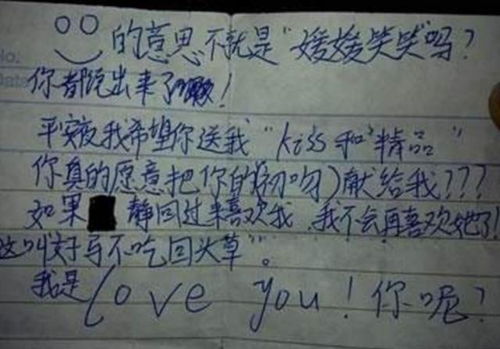 的意思不就是"媛媛笑笑"吗?
你都说出来了嗽!
平安夜我希望你送我"kiss和"精品"
你真的愿意把你的(初吻)献给我???
如果 静回过来喜欢我,我不会再喜欢她了!
这叫好马不吃回头草"。
我是love you!你呢?